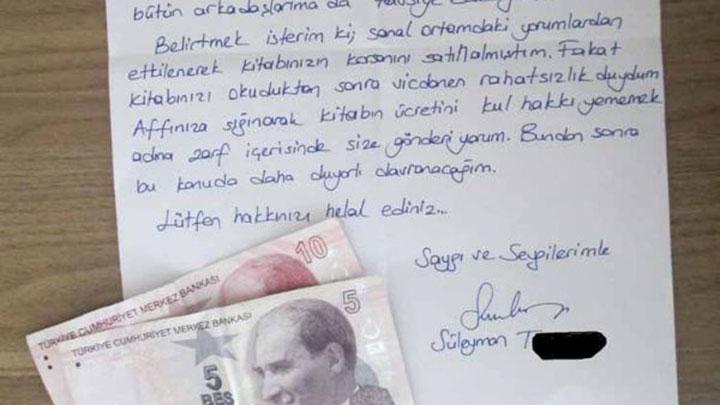 bütün arkadaşlarıma da tavsiye
Belirtmek isterim ki; sanal ortamdaki yorumlardan
etkilenerek kitabınızın korsanını satın almıştım. Fakat
kitabınızı okuduktan sonra vicdanen rahatsızlık duydum
Affınıza sığınarak kitabın ücretini kul hakkı yememek
adına zarf içerisinde size gönderiyorum. Bundan sonra
bu konuda daha duyarlı davranacağım.
Lütfen hakkınızı helal ediniz...
Saygı ve Sevgilerimle
Süleyman T
10
TÜRKİYE CUMHURİYET MERKEZ BANKASI
5
TÜRKİYE CUMHURİYET MERKEZ BANKASI
5
BEŞ